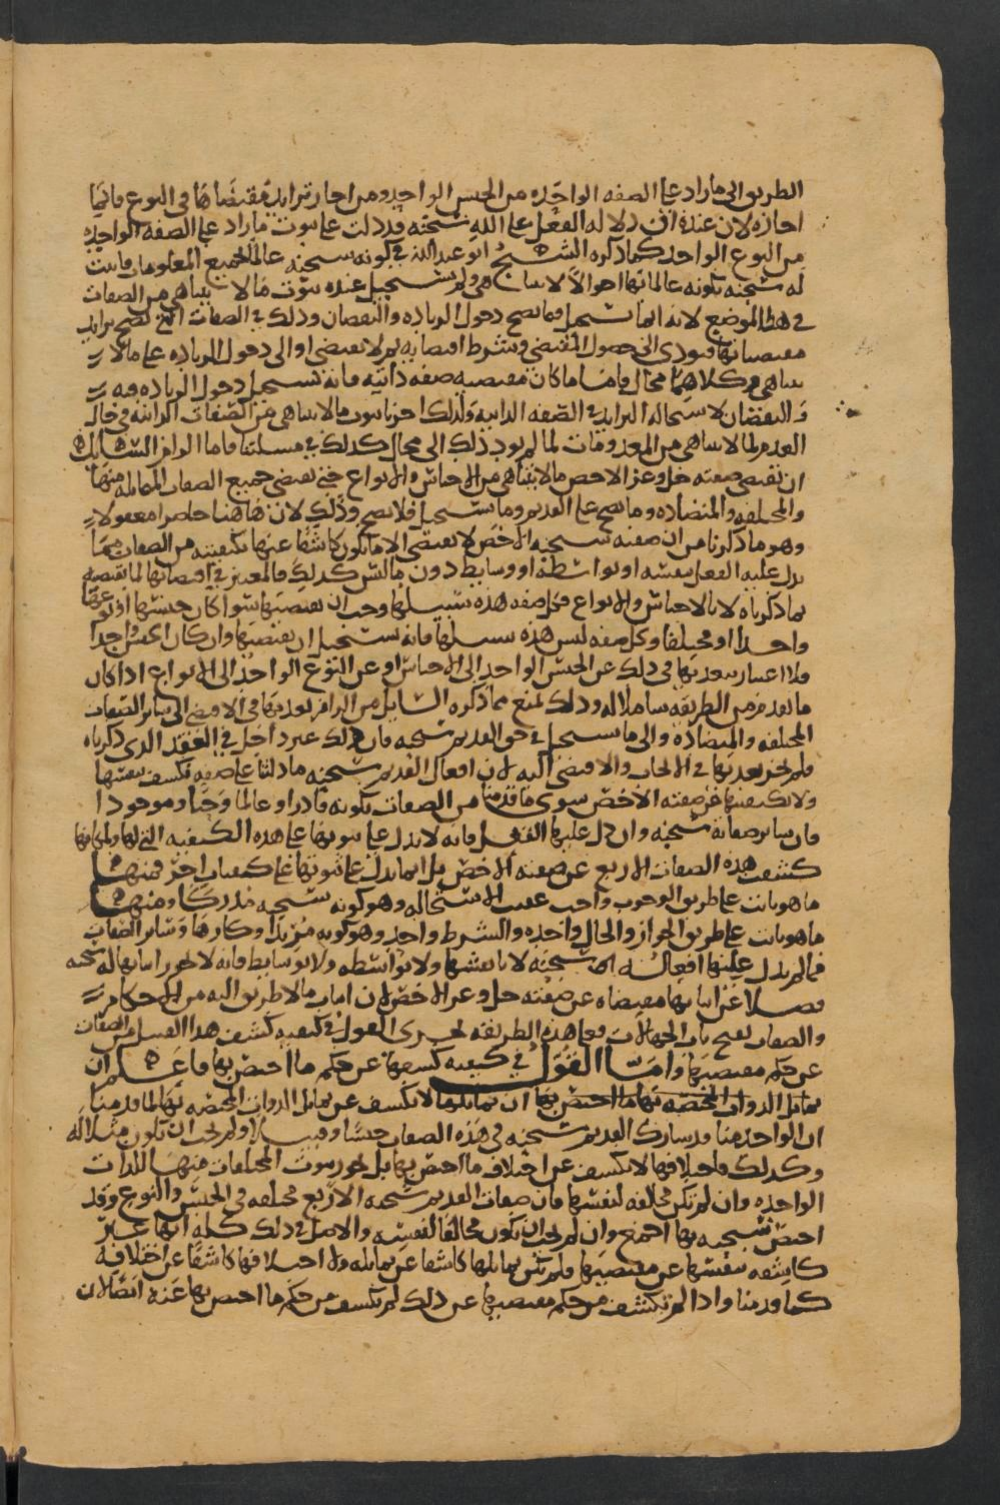 الطريق الى ما زاد على الصفه الواحده من الجنس الواحد ومن اجاز تزايد مقتضاها في النوع فانما
اجازه لان عنده ان دلاله الفعل على الله سبحنه قد دلت على ثبوت ما زاد على الصفه الواحده
من النوع الواحد كما ذكره الشيخ ابو عبدالله في كونه سبحنه عالما بجميع المعلومات فاثبت
له سبحنه بكونه عالما بها احوالا لا تتناهى ولم يستحيل عنده ثبوت ما لا يتناهى من الصفات
في هذا الموضع لانه انما يستحيل فيما يصح دخول الزياده والنقصان وذلك في الصفات التي يصح تزايد
مقتضياتها فيودي الى حصول المقتضي وشرط اقتضائه ثم لا يقتضي او الى دخول الزياده على ما لا
يتناهى وكلاهما محال فاما ما كان مقتضيه صفه ذاتيه فانه يستحيل دخول الزياده فيه
والنقصان لاستحاله التزايد في الصفه الذاتيه ولذلك اجزنا ثبوت ما لا يتناهى من الصفات الذاتيه في حال
العدم لما لا يتناهى من المعدومات لما لم يود ذلك الى محال كذلك في مسئلتنا فاما الزام السائل
ان تقتضي صفته جل وعز الاخص ما لا يتناهى من الاجناس والانواع حتى يقتضي جميع الصفات المتماثله منها
والمختلفه والمتضاده وما يصح على القديم وما يستحيل فلا يصح وذلك لان هاهنا حاصرا معقولا
وهو ما ذكرنا من ان صفته سبحنه الاخص لا تقتضي الا ما تكون كاشفا عنها بكيفيته من الصفات مما
يدل عليه الفعل بنفسه او بواسطه او وسايط دون ما ليس كذلك فالمعتبر في اقتضائها لما تقتضيه
بما ذكرناه لا بالاجناس والانواع فكل صفه هذه سبيلها وجب ان تقتضيها سوا كان جنسها او نوعها
واحدا او مختلفا وكل صفه ليس هذه سبيلها فانه يستحيل ان تقتضيها وان كان الجنس واحدا
فلا اعتبار بتعديها في ذلك عن الجنس الواحد الى الاجناس او عن النوع الواحد الى الانواع اذا كان
ما تقدم من الطريقه شاملا له وذلك يمنع مما ذكره السائل من الزام تعديها في الاقتضى الى سائر الصفات
المختلفه والمتضاده والى ما يستحيل في حق القديم سبحنه فان ذلك غير داخل في العقد الذي ذكرناه
فلم يجز تعديها في الايجاب والاقتضى اليه لان افعال القديم سبحنه ما دلتنا على صفه تكشف بنفسها
ولا بكيفيتها عن صفته الاخص سوى ما قدمنا من الصفات بكونه قادرا وعالما وحيا وموجودا
فان سائر صفاته سبحنه وان دل عليها الفعل فانه لا يدل على ثبوتها على هذه الكيفيه التي لها ولمكانها
كشفت هذه الصفات الاربع عن صفته الاخص بل انما يدل على ثبوتها على كيفيات اخر فمنها
ما هو ثابت على طريق الوجوب واجب عقيب الاستحاله وهو كونه سبحنه مدركا ومنها
ما هو ثابت على طريق الجواز والحال واحده والشرط واحد وهو كونه مريدا وكارها وسائر الصفات
فما لم يدل عليها افعال الله سبحنه لا بانفسها ولا بواسطه ولا بوسايط فانه لا يجوز اثباتها له سبحنه
فضلا عن اثباتها مقتضاه عن صفته جل وعز الاخص لان اثبات ما لا طريق اليه من الاحكام
والصفات يفتح باب الجهالات فعلى هذه الطريقه يجري القول في كيفيه كشف هذا القبيل من الصفات
عن حكم مقتضيها واما القول في كيفيه كشفها عن حكم ما اختص بها فاعلم ان
تماثل الذوات المختصه بها ما اختص بها ان تماثلها لا يكشف عن تماثل الذوات المختصه بها لما قدمنا
ان الواحد منا قد شارك القديم سبحنه في هذه الصفات جنسا وقبيلا ولم يجب ان يكون مثلا له
وكذلك فاختلافها لا يكشف عن اختلاف ما اختص بها بل يجوز ثبوت المختلفات منها للذات
الواحده وان لم تكن مخالفه لنفسها فان صفات القديم سبحنه الاربع مختلفه في الجنس والنوع وقد
اختص سبحنه بها اجمع وان لم يجب ان يكون مخالفا لنفسه والاصل في ذلك كله انها غير
كاشفه بنفسها عن مقتضيها فلم يكن تماثلها كاشفا عن تماثله ولا اختلافها كاشفا عن اختلافه
كما قدمنا واذا لم تكشف من حكم مقتضيها عن ذلك لم تكشف من حكم ما اختص بها عنه ايضا لان